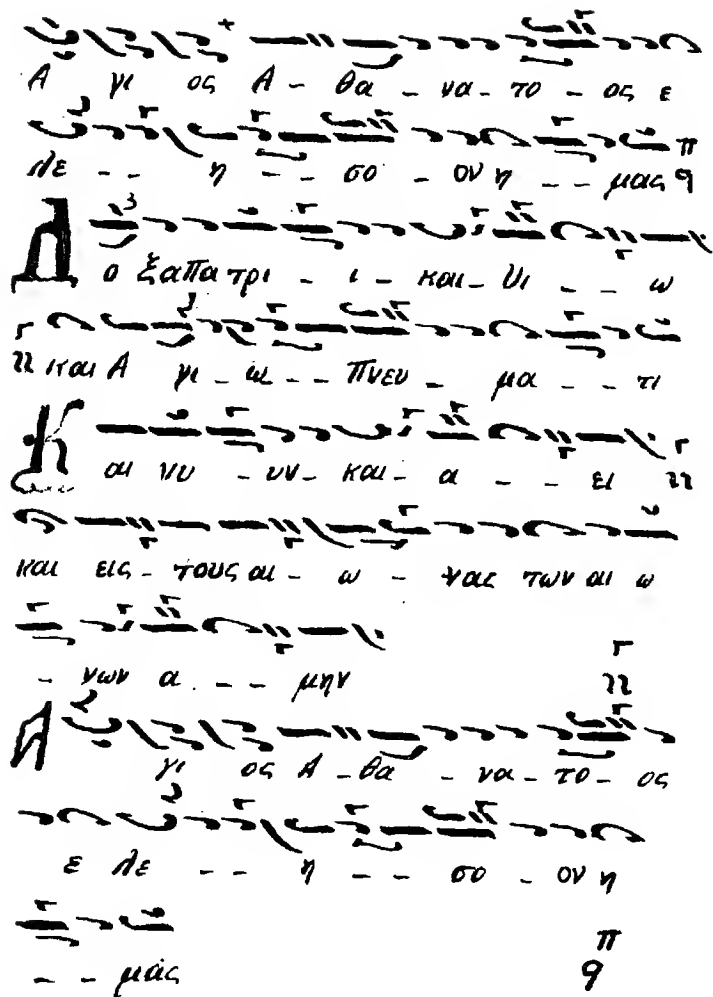 Α γι ος Α - θα - να - το - ος ε
λε - - η - - σο - ον η - - μας
Δ ο ξα Πα τρι - ι - και - Υι - - ω
και Α γι - ω - - Πνευ - μα - - τι
Κ αι νυ - υν - και - α - - - ει
και εις - τους αι - ω - νας των αι ω
- νων α - - - μην
Α γι ος Α - θα - να - το - ος
ε λε - - η - - σο - ον η
- - μάς